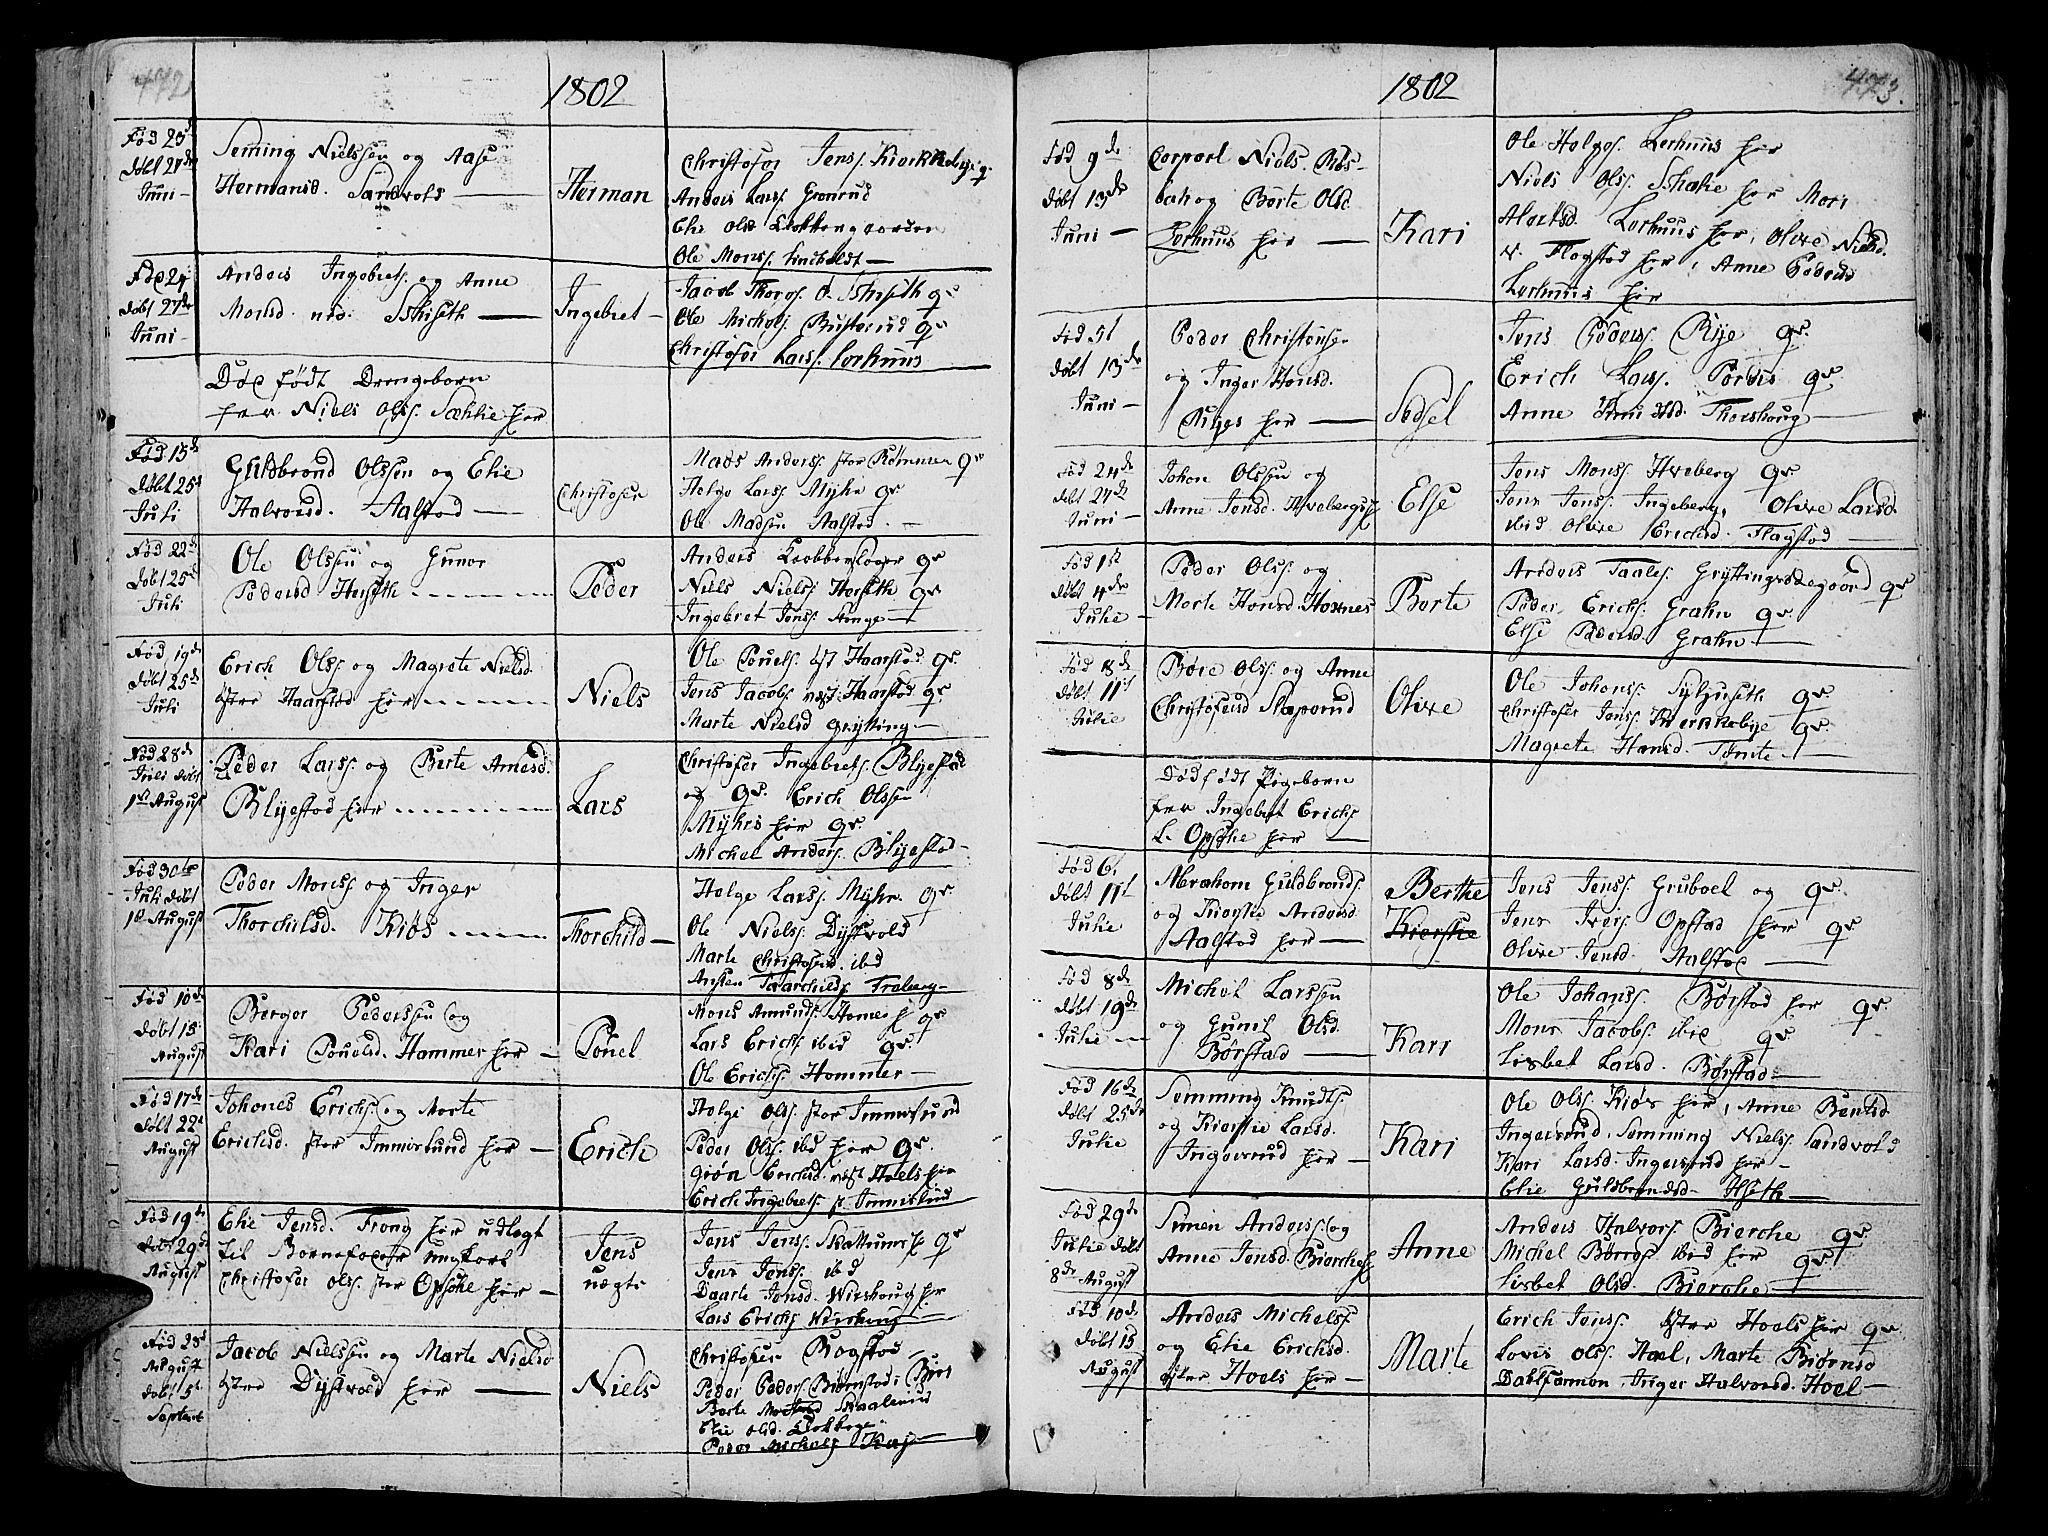 472
1802
Fød 23d
Døbt 27de
Juni
Seming Nielssen og Aase
Hermansd. Sandvold
Herman
Christofer Jenss. Kierkebye qr.
Anders Larss. Gronrud
Elie Olsd
Ole Monss.
Fød 24
døbt 27de
Juni
Anders Ingebrets. og Anne
Monsd. ned. Skiseth
Ingebret
Jacob Thorgs. Ø. Skiseth qr
Ole Michels. Busterud qr
Christofer Larss. Lochuus
Død født Drengebørn
for Niels Olss. Sæhlie her
Fød 15de
døbt 25d
Juli
Guldbrand Olssen og Elie
Halvorsd. Aalstad
Christofer
Mads Anderss. stor Rømmen qr
Helge Larss. Myhr qr.
Ole Madsen Aalstad
Fød 22de
døbt 25d
Juli
Ole Olssen og Gunor
Pedersd Horseth
Peder
Anders Klokkerslager qr
Niels Nielss. Horseth qr
Ingebret Jenss. Stenge
Fød 19de
døbt 25de
Juli
Erich Olss. og Magrete Nielsd
østre Haarstad her
Niels
Ole Pouels. øst Haarstad qr.
Jens Jacobs. vest Haarstad qr
Marte Nielsd Grytting
Fød 28de
Juli døbt
1st August
Peder Larss. og Berte Arnesd.
Blyestad her
Lars
Christofer Ingebrets. Blyestad
og qr. Erich Olssen
Myhrs her qr.
Michel Anders. Blyestad
Fød 30te
Juli døbt
1st August
Peder Monss. og Inger
Thorchilsd. Kiøs
Thorchild
Helge Larss. Myhr qr
Ole Nielss. Dystvold
Marte Christofersd. ibid
Fød 10de
døbt 15
August
Berger Pederssen og
Kari Pouelsd. Hammer her
Pouel
Mons Amunds. Homes f qr
Lars Erichs. ibid qr
Ole Erichs. Hammer
Fød 17de
døbt 22d
August
Johanes Erichs. og Marte
Erichsd. stor Immerslund her
Erich
Helge Olss. stor Immerslund
Peder Olss. ibid her qr.
Grøn Erichsd. vest Hoels her
Erich Ingebrets. f Immerslund
Fød 19de
døbt 29d
August
Elie Jensd. Frong her udlagt
til Barnefader ungkarl
Christofer Olss. stor Opsahe her
Jens
uægte
Jens Jenss. Skattum f qr
Jens Jenss. ibd
Daarte Jensd. Wirshoug her
Lars Erichs Wirshoug
Fød 28d
August
døbt 5t
Septem
Jacob Nielssen og Marte Nielsd
østre Dystvold her
Niels
Christofer Bogstad
Peder Peders. Biørnstad
Berte Skaalerud
Elie Olsd.
Peder Michels
473.
1802
Fød 9de
døbt 13de
Juni
Corporl Niels
og Berte Olsd
Lorhuus her
Kari
Ole Helges. Lorhuus her
Niels Olss. Skahe her Mari
Alertsd. Lorhuus her, Olive Nielsd.
v. Flagstad her, Anne Pedersd
Lorhuus her
Fød 5t
døbt 13de
Juni
Peder Christensen
og Inger Hansd.
Ryes her
Sedsel
Jens Pederss. Rye qr.
Erich Larss. Pornis qr.
Anne Knudsd. Thorshoug
Fød 24de
døbt 27de
Juni
Johan Olssen og
Anne Jensd. Hvebergs f
Else
Jens Monss. Hveberg qr.
Jens Jenss. Ingeberg, Olive Larsd.
ibid Olive Erichsd. Flagstad
Fød 1st
døbt 4de
Julie
Peder Olss. og
Marte Hansd. Hornes
Berte
Anders Taales. Gryttingsødegaard qr
Peder Erichs. Grahn qr
Else Pedersd. Grahn
Fød 8de
døbt 11t
Julie
Børe Olss. og Anne
Christofersd Slaperud
Olive
Ole Johans. Sylguseth qr
Christofer Jenss. Kierkebye qr.
Magrete Hansd. Tømte
Dødfødt Pigebarn
for Ingebret Erichs
L. Opsahe her
Fød 6t
døbt 11t
Julie
Abraham Guldbrands.
og Kierstie Andersd.
Aalstad her
Berthe
Kierstie
Jens Jenss. Gruboel og qr.
Jens Ivers. Opstad her qr
Olive Jensd. Aalstad
Fød 8de
døbt 19de
Julie
Michel Larssen
og Gunil Olsd.
Børstad
Kari
Ole Johanss. Børstad her qr.
Mons Jacobs. ibid qr.
Lisbet Larsd. Børstad
Fød 16de
døbt 25de
Julie
Semming Knuds.
og Kierstie Larsd.
Ingerud her
Kari
Ole Olss. Kiøs her, Anne Bentsd
Ingerud. Semming Nielss. Sandvold
Kari Larsd. Ingerud her
Elie Guldbrandsd. Hseth
Fød 29de
Julie døbt
8de August
Simen Anders. og
Anne Jensd. Bierche f
Anne
Anders Halvors. Bierche qr
Michel Børres. ibid her qr.
Lisbet Olsd. Bierche
Fød 10de
døbt 15
August
Anders Michels.
og Elie Erichsd.
østre Hoels her
Marte
Erich Jenss. østre Hoels her qr
Lovis Olss. Hoel, Marte Biørnsd
Dahlsarmen, Inger Halvorsd. Hoel